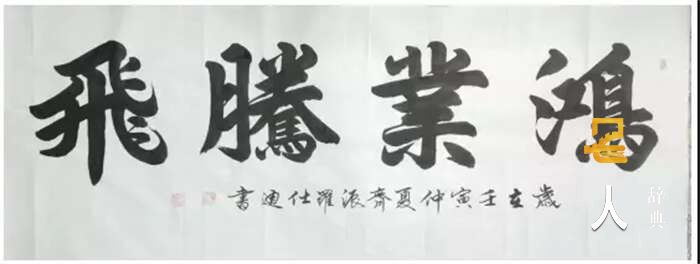 鴻業騰飛
歲在壬寅仲夏齊派羅仕迪書
名人
辞典